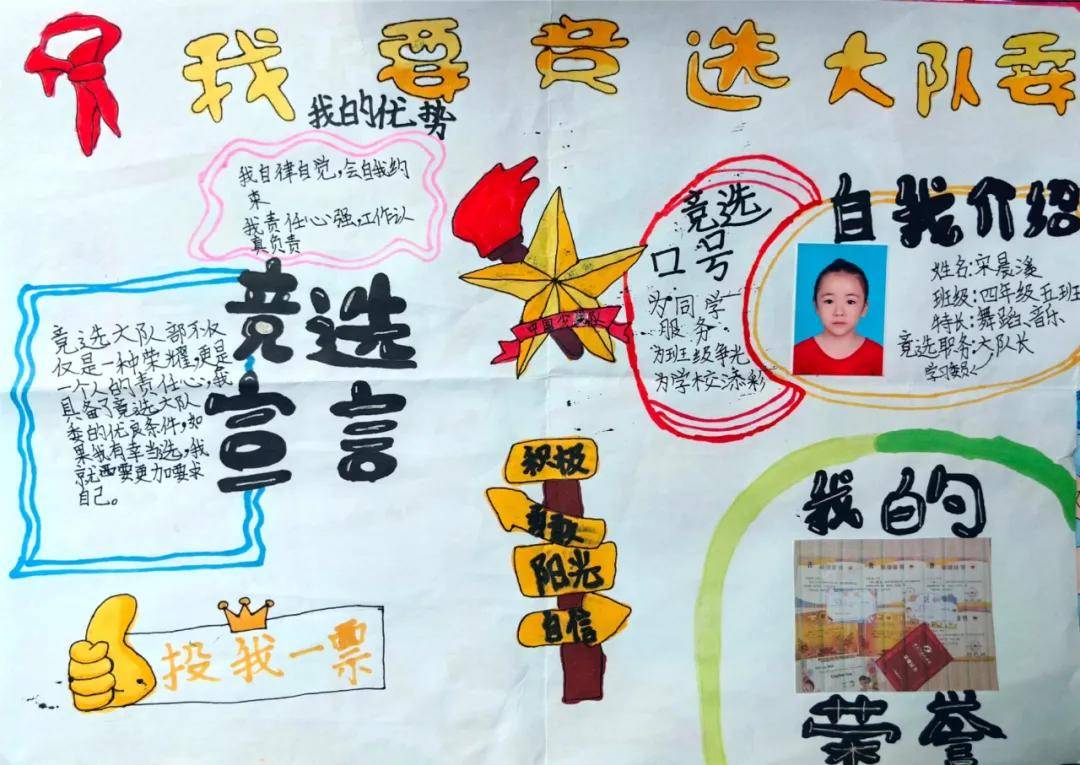 我要竞选大队委
我的优势
我自律自觉，会自我约
束
我责任心强，工作认
真负责
竞选
宣言
竞选大队部不仅
仅是一种荣耀，更是
一个人的责任心，我
具备了竞选大队
委的优良条件，如
果我有幸当选，我
就西要更加要求
自己。
投我一票
中国少先队
积极
勇敢
阳光
自信
竞选
口号
为同学
服务
为班级争光
为学校添彩
自我介绍
姓名：宋晨溪
班级：四年级五班
特长：舞蹈、音乐
竞选职务：大队长
学习
我的
荣誉